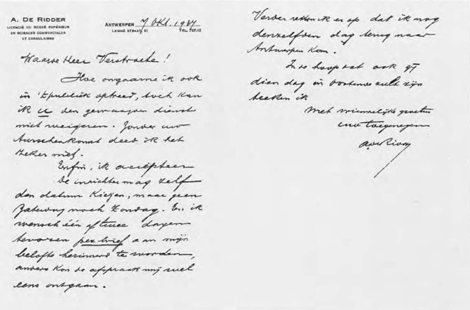 A. DE RIDDER
LICENCIÉ DU DEGRÉ SUPÉRIEUR
EN SCIENCES COMMERCIALES
ET CONSULAIRES
ANTWERPEN 7 Okt. 1927
LANGE STRAAT, 51
Waarde Heer Verstraete!
Hoe ongaarne ik ook
in 't publiek optreed, toch kan
ik u den gevraagden dienst
niet weigeren. Zonder uw
tusschenkomst deed ik het
zeker niet.
Enfin, ik accepteer
De inrichter mag zelf
den datum kiezen, maar geen
Zaterdag noch Zondag. En ik
wensch één of twee dagen
tevoren per brief aan mijn
belofte herinnerd te worden,
anders kon de afspraak mij wel
eens ontgaan.
Verder reken ik er op dat ik nog
denzelfden dag terug naar
Antwerpen kan.
En de hoop dat ook gij
dien dag in Oostende zult zijn
teeken ik
Met vriendelijke groeten
uw toegenegen